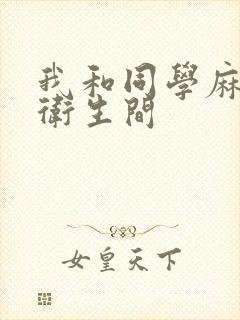 我和同學麻
衛生間
女皇天下